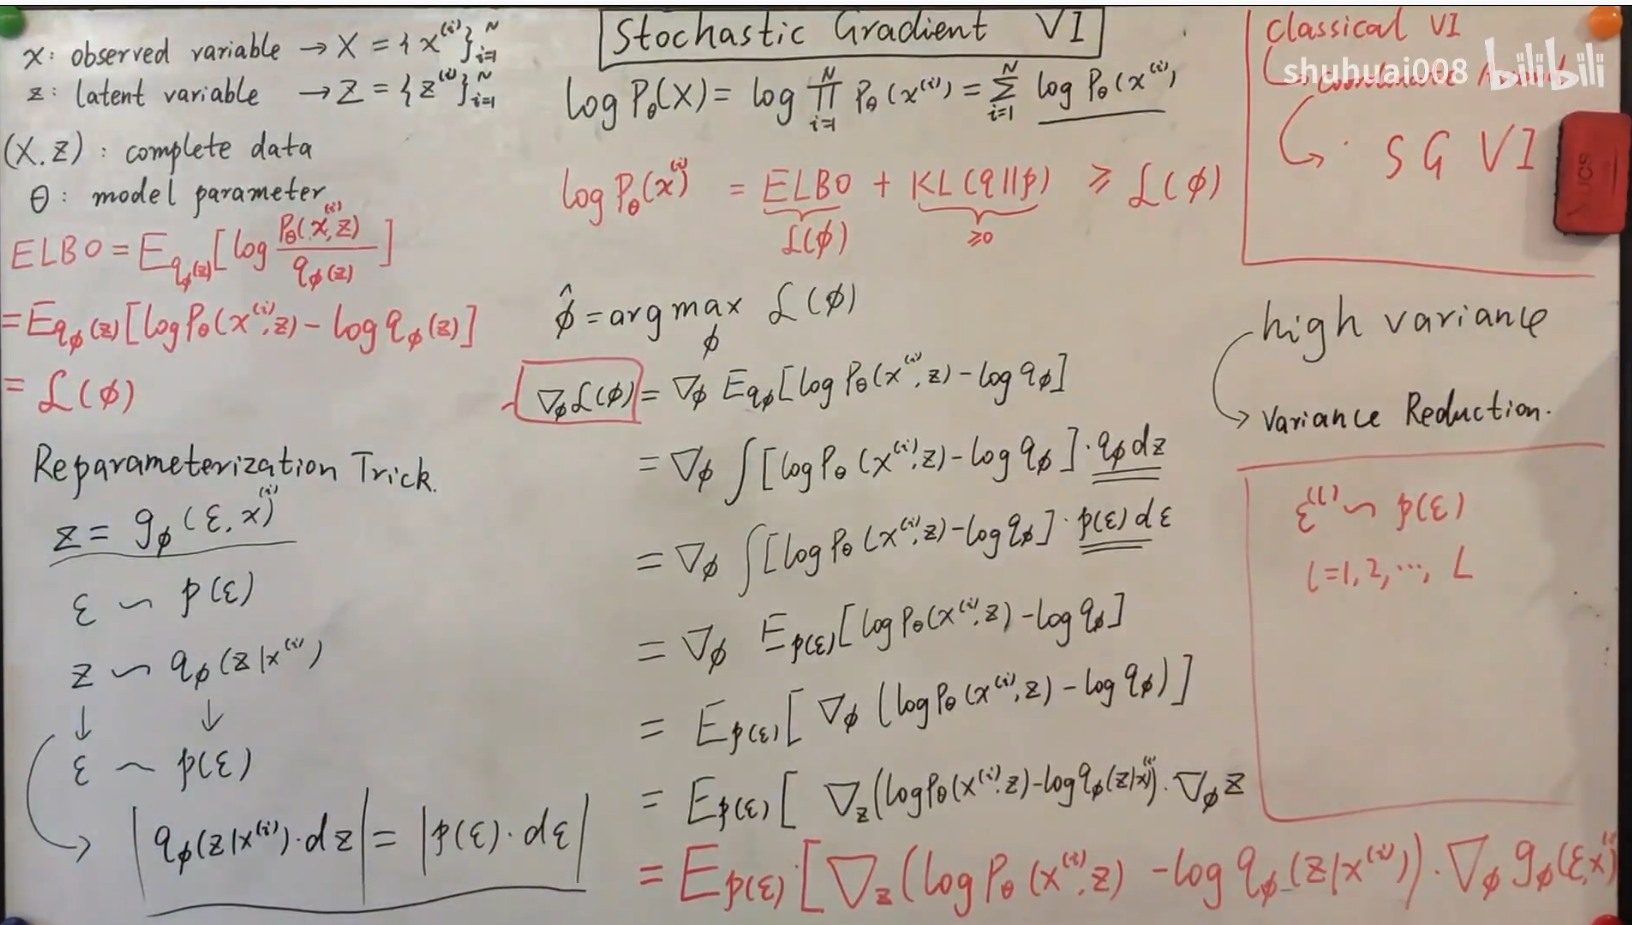 Stochastic Gradient VI
x: observed variable → X = {x^{(i)}}_{i=1}^{N}
z: latent variable → Z = {z^{(i)}}_{i=1}^{N}
(X, Z): complete data
θ: model parameter
ELBO = E_{q_φ(z)}[log P_θ(x^{(i)}, z) / q_φ(z)]
= E_{q_φ(z)}[log P_θ(x^{(i)}, z) - log q_φ(z)]
= L(φ)
Reparameterization Trick.
z = g_φ(ε, x^{(i)})
ε ~ p(ε)
z ~ q_φ(z|x^{(i)})
↓ ↓
ε ~ p(ε)
→ |q_φ(z|x^{(i)})·dz| = |p(ε)·dε|
log P_θ(X) = log ∏_{i=1}^{N} P_θ(x^{(i)}) = ∑_{i=1}^{N} log P_θ(x^{(i)})
log P_θ(x^{(i)}) = ELBO + KL(q||p) ≥ L(φ)
L(φ) ≥0
φ̂ = arg max_φ L(φ)
∇_φ L(φ) = ∇_φ E_{q_φ}[log P_θ(x^{(i)}, z) - log q_φ]
= ∇_φ ∫[log P_θ(x^{(i)}, z) - log q_φ]·q_φ dz
= ∇_φ ∫[log P_θ(x^{(i)}, z) - log q_φ]·p(ε) dε
= ∇_φ E_{p(ε)}[log P_θ(x^{(i)}, z) - log q_φ]
= E_{p(ε)}[∇_φ (log P_θ(x^{(i)}, z) - log q_φ)]
= E_{p(ε)}[∇_z (log P_θ(x^{(i)}, z) - log q_φ(z|x^{(i)})·∇_φ z
= E_{p(ε)}[∇_z (log P_θ(x^{(i)}, z) - log q_φ(z|x^{(i)}))·∇_φ g_φ(ε, x^{(i)})
Classical VI
shuhuai008 bilibili
→ · SG VI
high variance
→ Variance Reduction.
ε^{(l)} ~ p(ε)
l=1,2,…, L